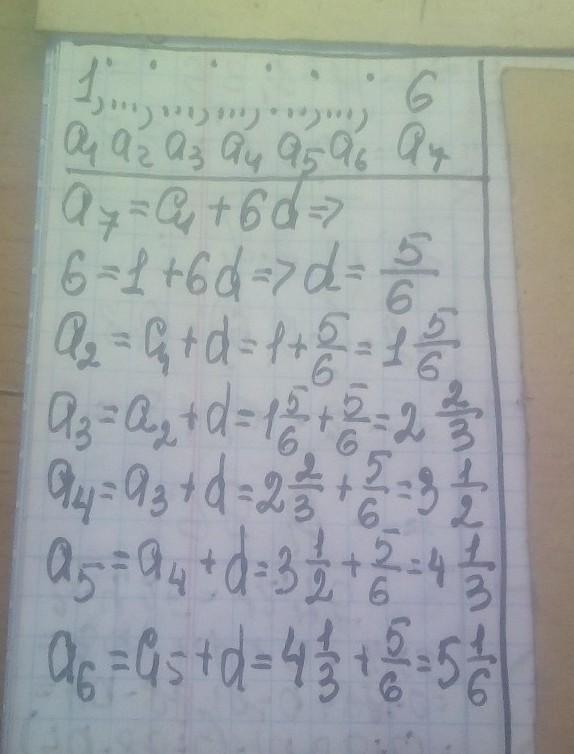 1, ..., ..., ..., ..., ..., 6
a₁ a₂ a₃ a₄ a₅ a₆ a₇
a₇ = a₁ + 6d =>
6 = 1 + 6d => d = 5/6
a₂ = a₁ + d = 1 + 5/6 = 1 5/6
a₃ = a₂ + d = 1 5/6 + 5/6 = 2 2/3
a₄ = a₃ + d = 2 2/3 + 5/6 = 3 1/2
a₅ = a₄ + d = 3 1/2 + 5/6 = 4 1/3
a₆ = a₅ + d = 4 1/3 + 5/6 = 5 1/6